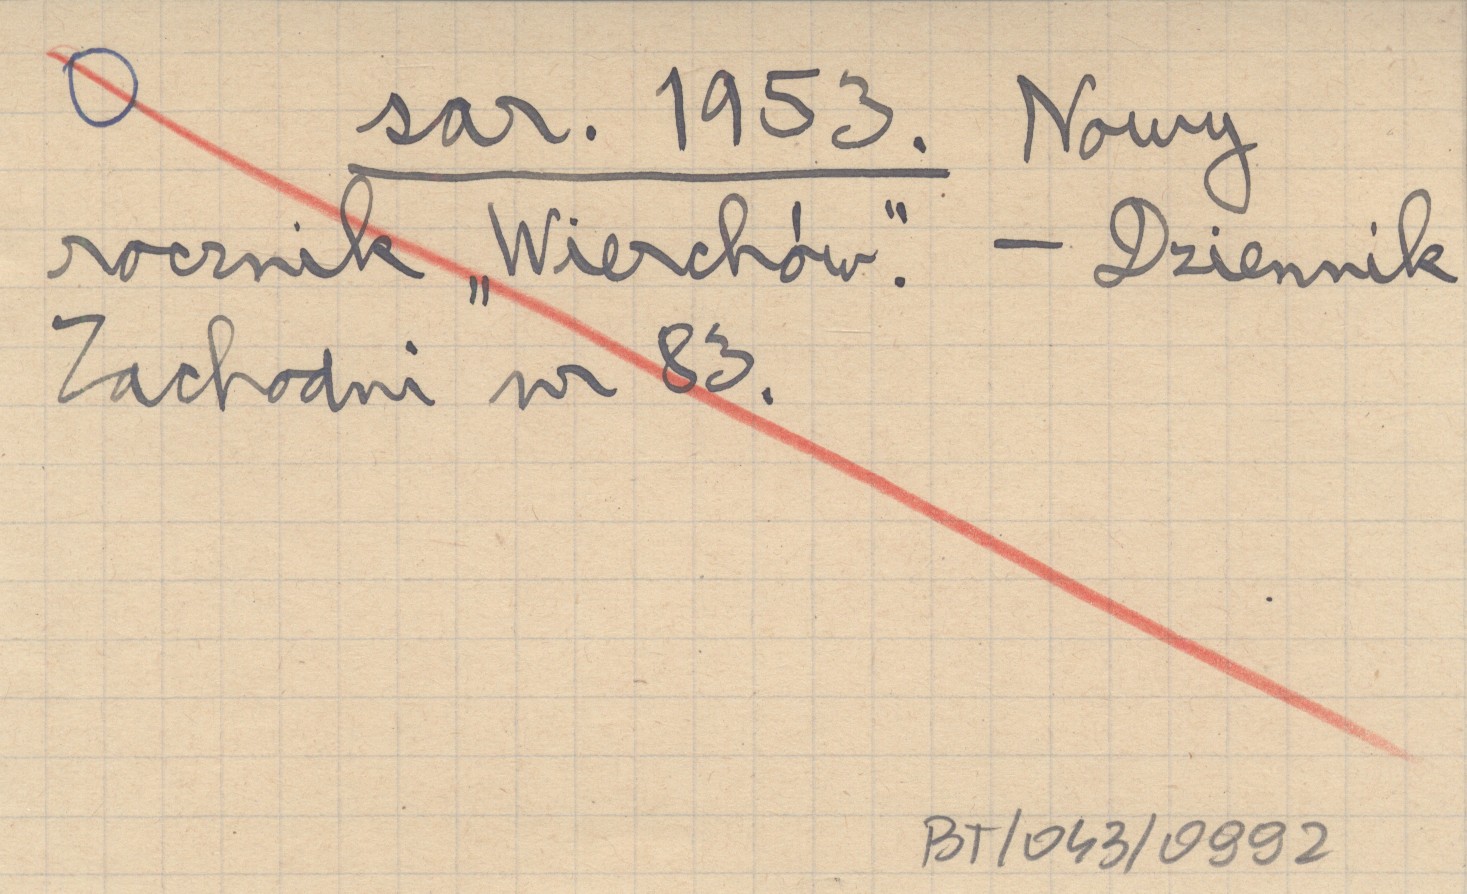 sar. 1953. Nowy
rocznik „Wierchów". — Dziennik
Zachodni nr 83.
BT/043/0992